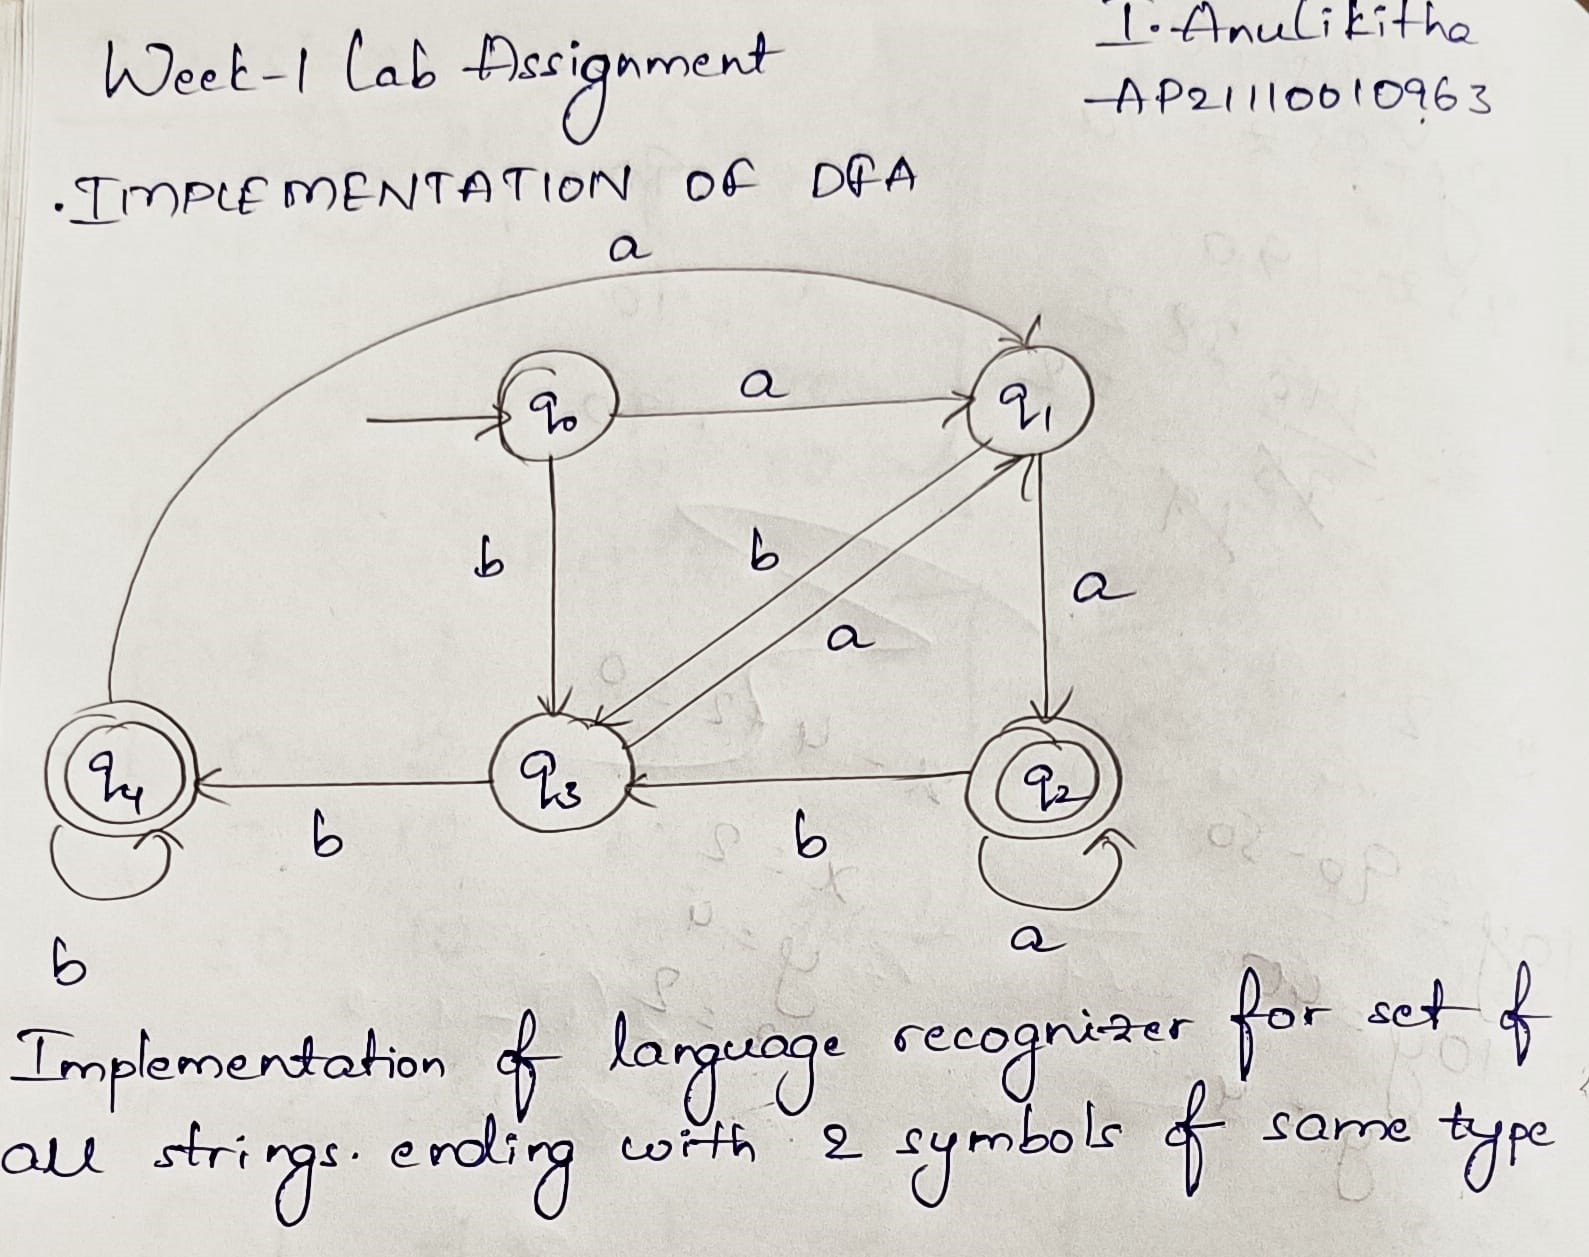 Week-1 Lab Assignment
I. Anulikitha
AP21110010963
. IMPLEMENTATION OF DFA
a
q0
a
q1
b
b
a
a
q4
b
q3
b
q2
b
a
Implementation of language recognizer for set of
all strings. ending with 2 symbols of same type